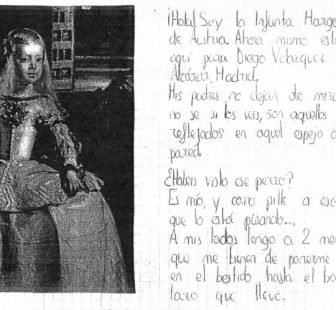 ¡Hola! Soy la Infanta Marga
de Austria. Ahora mismo est
aquí para Diego Velázquez
Alcázar, Madrid.
Mis padres no dejan de mira
no se si los veis, son aquellos
reflejados en aquel espejo d
pared.
¿Habeis visto ese perro?
Es mío, y como pille a es
que lo está pisando...
A mis lados tengo a 2 me
que me tienen de ponerme
en el bestido hasta el
lazo que llevo.